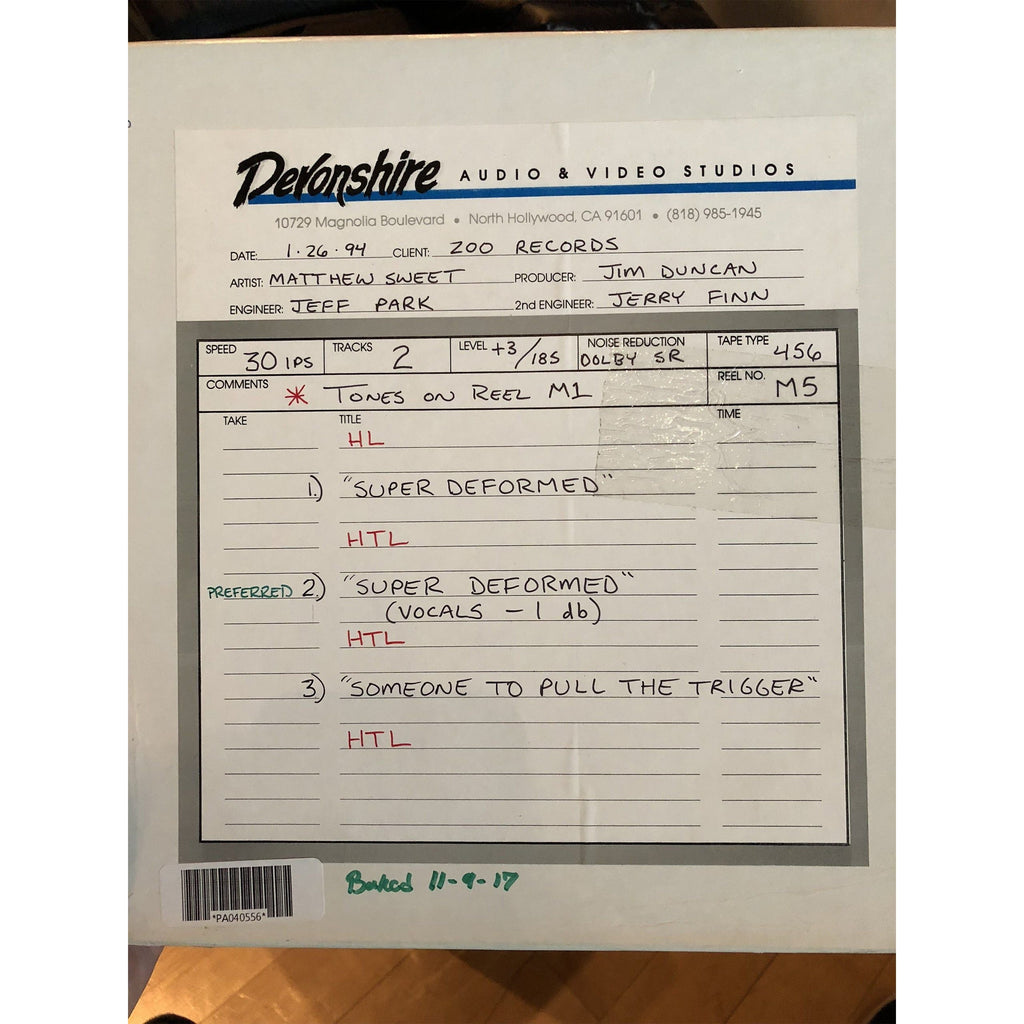 Devonshire AUDIO & VIDEO STUDIOS
10729 Magnolia Boulevard • North Hollywood, CA 91601 • (818) 985-1945
DATE: 1·26·94 CLIENT: ZOO RECORDS
ARTIST: MATTHEW SWEET PRODUCER: JIM DUNCAN
ENGINEER: JEFF PARK 2nd ENGINEER: JERRY FINN
SPEED 30 IPS TRACKS 2 LEVEL +3/185 NOISE REDUCTION DOLBY SR TAPE TYPE 456
COMMENTS * TONES ON REEL M1 REEL NO. M5
TAKE TITLE TIME
HL
1.) "SUPER DEFORMED"
HTL
PREFERRED 2.) "SUPER DEFORMED"
(VOCALS - 1 db)
HTL
3) "SOMEONE TO PULL THE TRIGGER"
HTL
Baked 11-9-17
*PA040556*